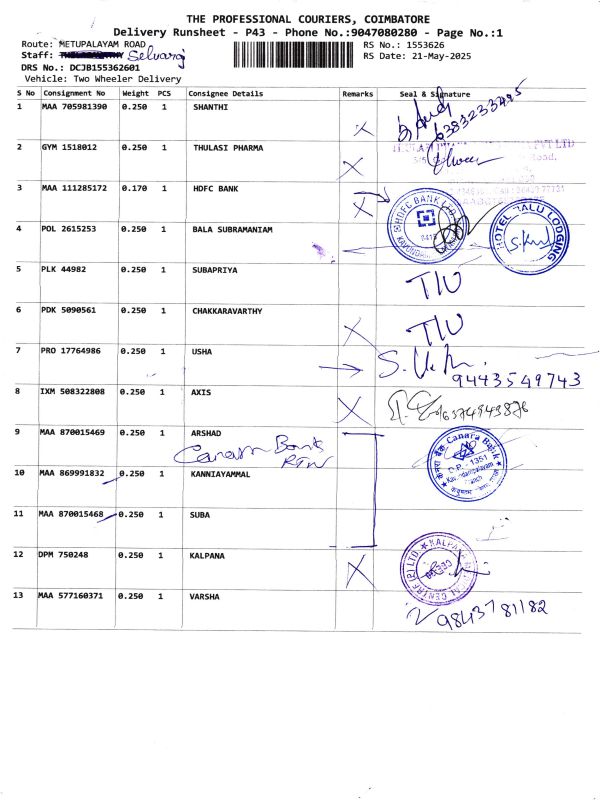 THE PROFESSIONAL COURIERS, COIMBATORE
Delivery Runsheet - P43 - Phone No.:9047080280 - Page No.:1
Route: METUPALAYAM ROAD
RS No.: 1553626
Staff: Selvaraj
RS Date: 21-May-2025
DRS No.: DCJB155362601
Vehicle: Two Wheeler Delivery
S No Consignment No Weight PCS Consignee Details Remarks Seal & Signature
1 MAA 705981390 0.250 1 SHANTHI
6383233495
2 GYM 1518012 0.250 1 THULASI PHARMA
PVT LTD
3 MAA 111285172 0.170 1 HDFC BANK
HDFC BANK LTD
4 POL 2615253 0.250 1 BALA SUBRAMANIAM
HOTEL BALU LODGING
5 PLK 44982 0.250 1 SUBAPRIYA
T/U
6 PDK 5090561 0.250 1 CHAKKARAVARTHY
T/U
7 PRO 17764986 0.250 1 USHA
9443549743
8 IXM 508322808 0.250 1 AXIS
9 MAA 870015469 0.250 1 ARSHAD
Canara Bank
RTN
Canara Bank
D.P. - 1351
10 MAA 869991832 0.250 1 KANNIAYAMMAL
11 MAA 870015468 0.250 1 SUBA
12 DPM 750248 0.250 1 KALPANA
KALPANA MEDICAL CENTRE (P) LTD.
13 MAA 577160371 0.250 1 VARSHA
9843781182